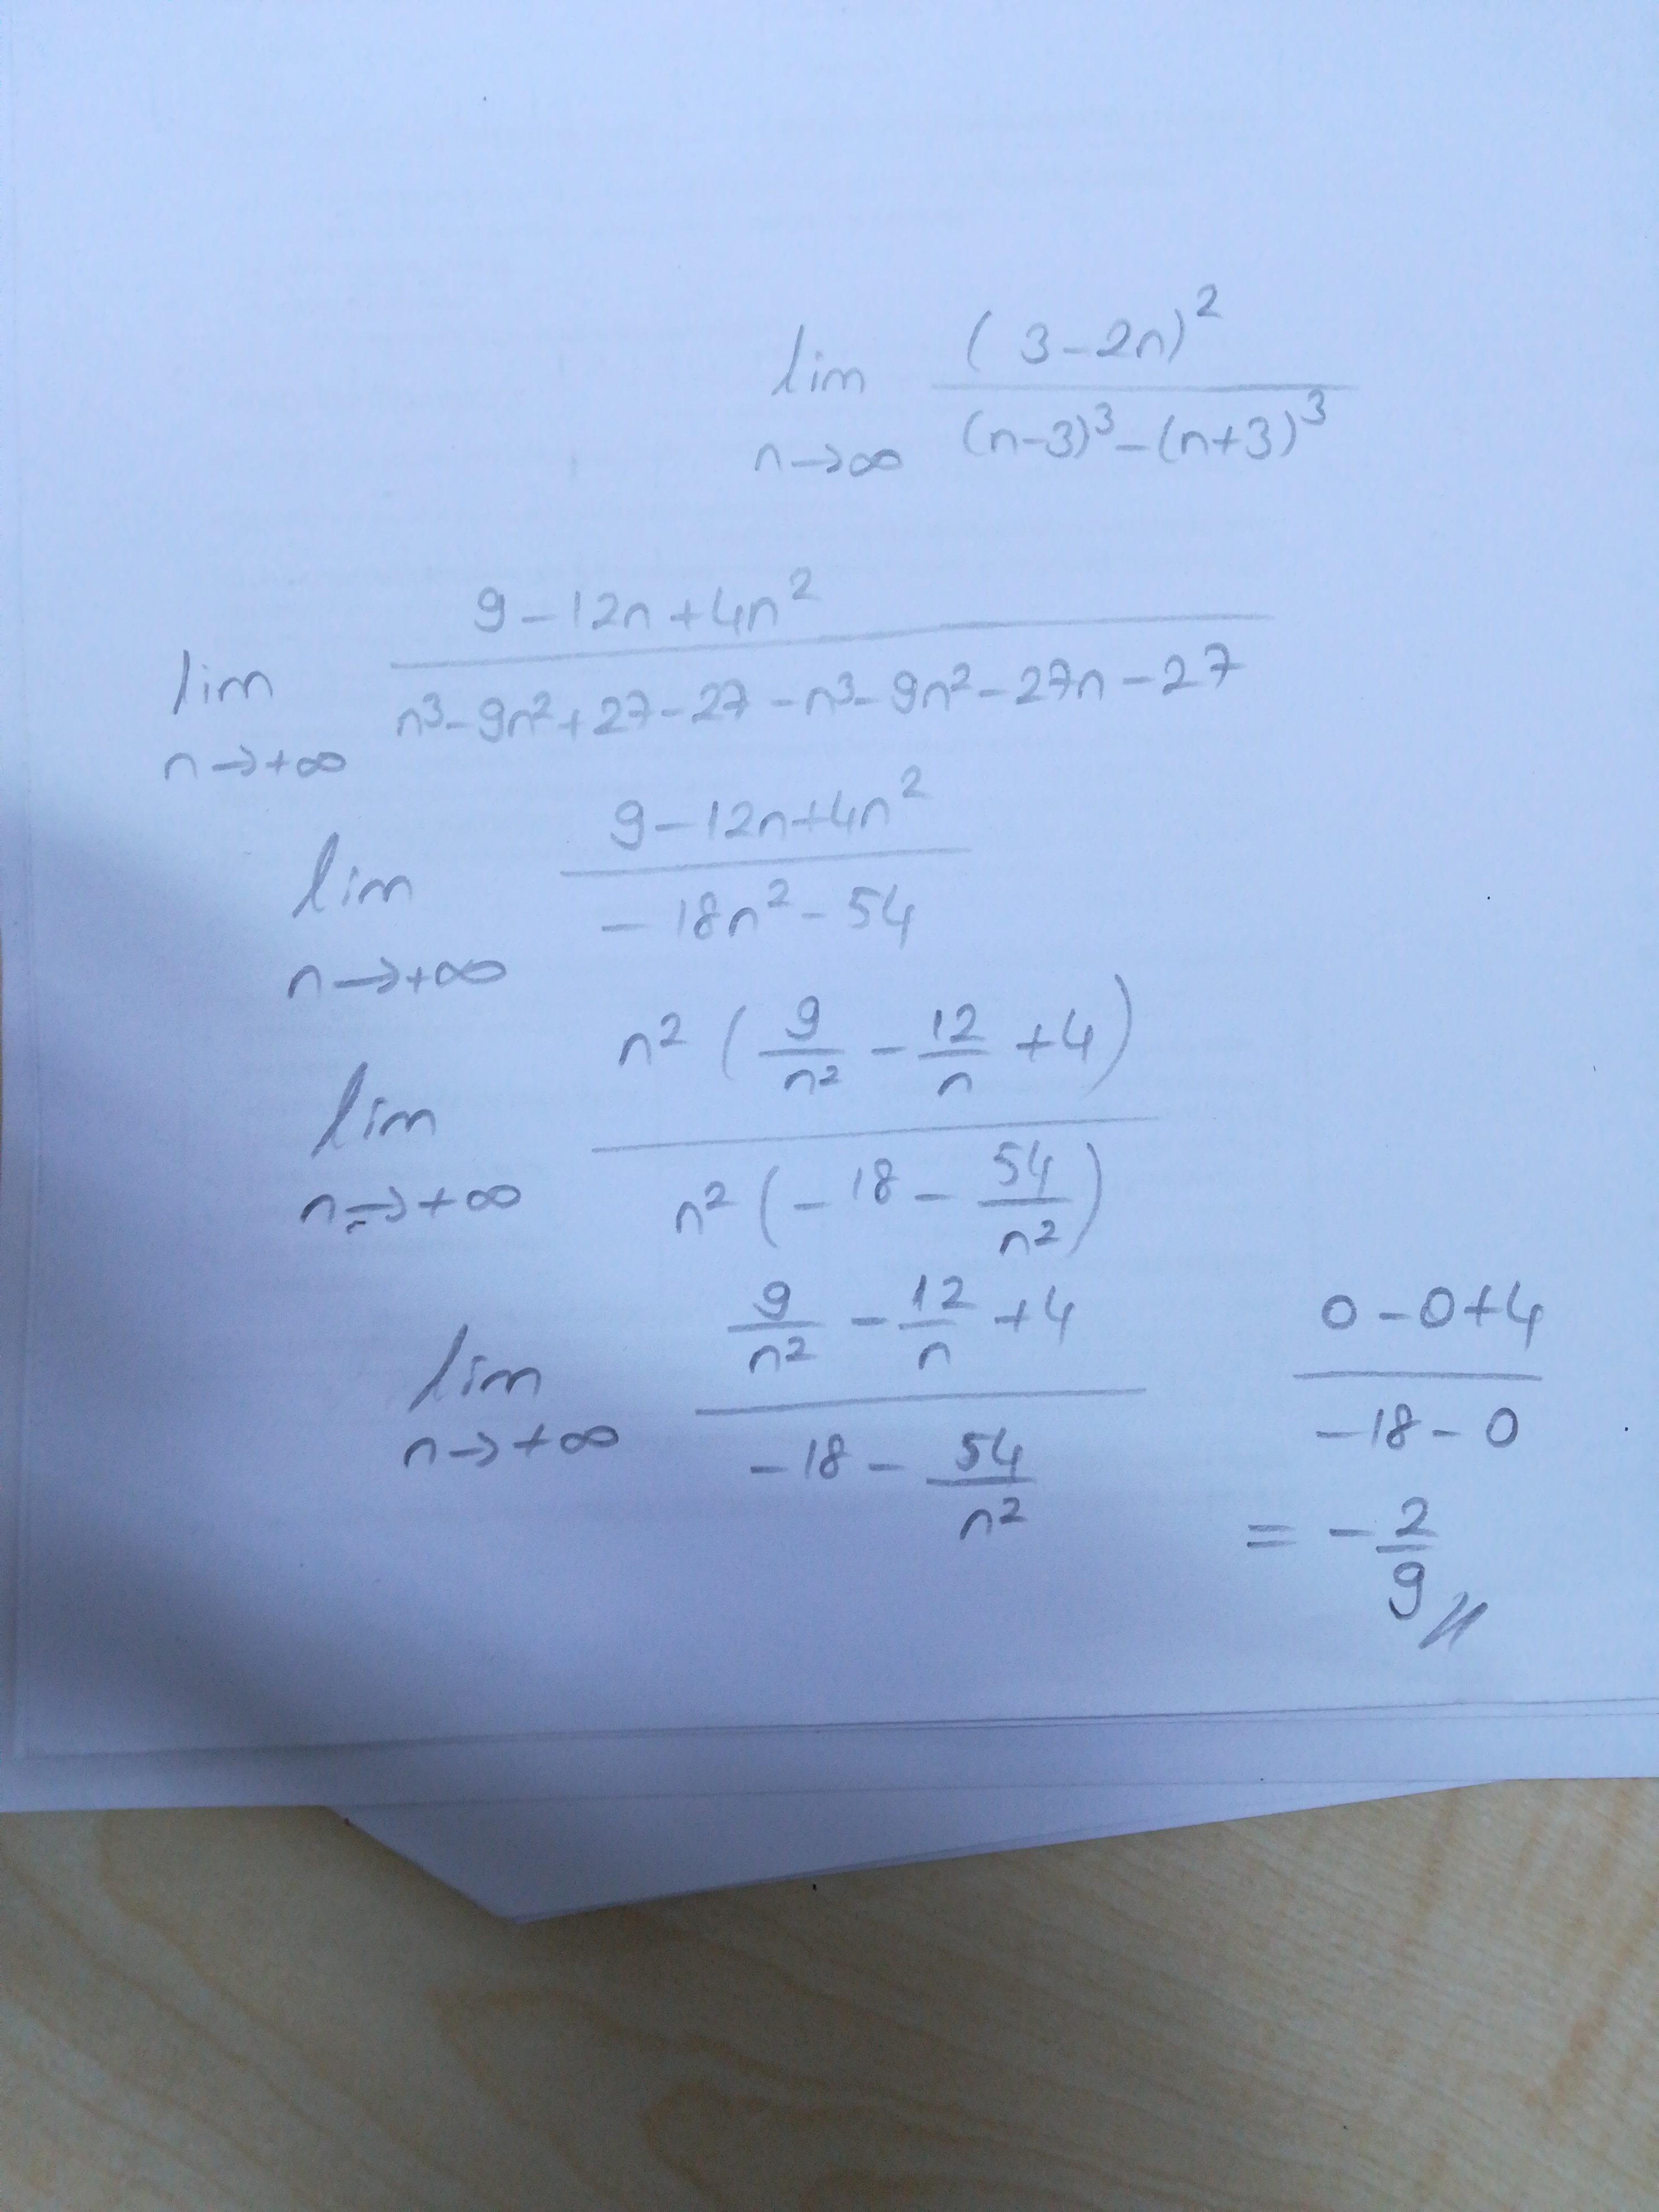 lim (3-2n)² / (n-3)³-(n+3)³
n→∞
lim 9-12n+4n² / n³-9n²+27-27-n³-9n²-27n-27
n→+∞
lim 9-12n+4n² / -18n²-54
n→+∞
lim n²(9/n² - 12/n +4) / n²(-18 - 54/n²)
n→+∞
lim 9/n² - 12/n +4 / -18 - 54/n² 0-0+4 / -18-0
n→+∞
= -2/9